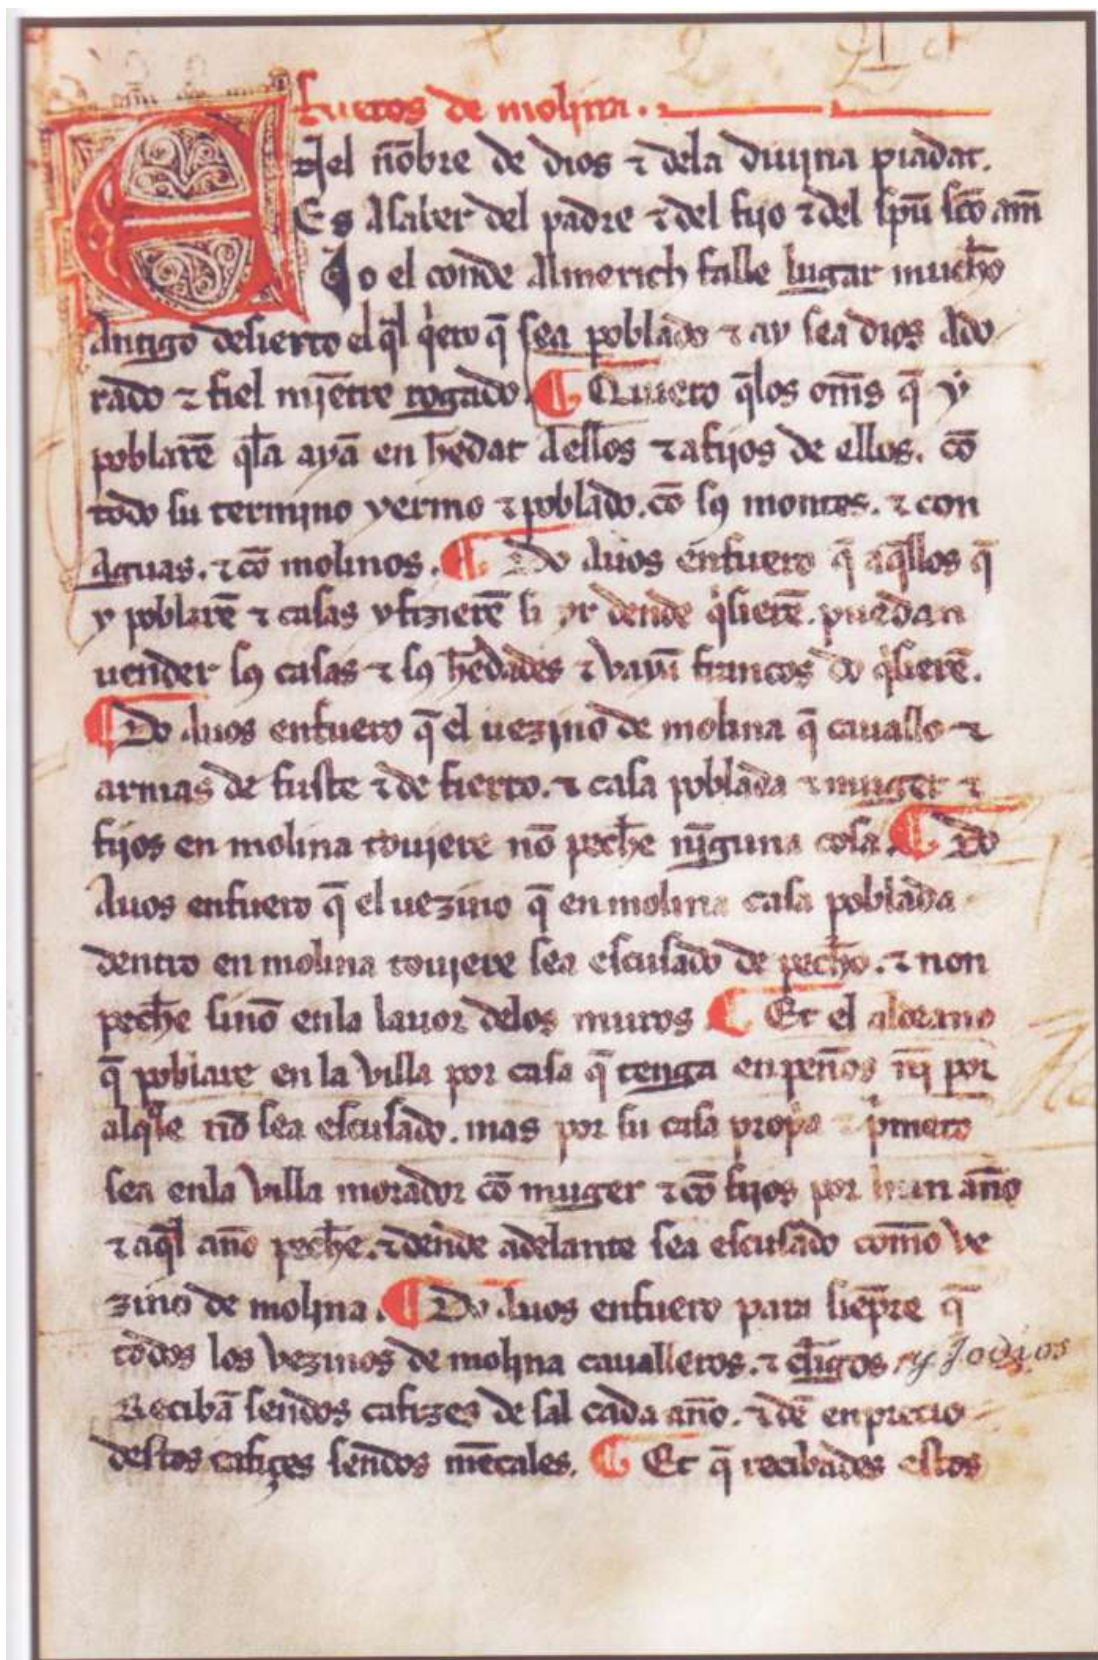 fueros de molina.
En el nōbre de dios ⁊ dela diuina piadat.
Es Asaber del padre ⁊ del fijo ⁊ del spū scō am̄
Io el conde Almerich falle lugar mucho
Antigo desierto el q̄l q̇ero q̄ sea poblado ⁊ ay sea dios Ado
rado ⁊ fiel mjētre rogado. ¶ Quiero q̄los om̄s q̄ y
poblarē q̄la ayā en h̄edat Aellos ⁊ afijos de ellos. cō
todo su termino yermo ⁊ poblado. cō sꝯ montes. ⁊ con
Aguas. ⁊ cō molinos. ¶ Do Auos enfuero q̄ aq̄llos q̄
y poblarē ⁊ casas y fizierē si yr dende q̇sierē. puedan
uender sꝯ casas ⁊ sꝯ h̄edades ⁊ vayā francos do q̇sierē.
¶ Do Auos enfuero q̄ el uezino de molina q̄ cauallo ⁊
armas de fuste ⁊ de fierro. ⁊ casa poblada ⁊ muger ⁊
fijos en molina toujere nō peche nj̄guna cosa. ¶ Do
Auos enfuero q̄ el uezino q̄ en molina casa poblada
dentro en molina toujere sea escusado de pecho. ⁊ non
peche sinō enla lauor delos muros ¶ Et el aldeano
q̄ poblare en la villa por casa q̄ tenga enpeños nj̄ por
alq̇le nō sea escusado. mas por su casa propia ⁊ ṗmero
sea enla villa morador cō muger ⁊ cō fijos por hun año
⁊ aq̄l año peche. ⁊ dende adelante sea escusado como ve
zino de molina. ¶ Do Auos enfuero para siēpre q̄
todos los vezinos de molina caualleros. ⁊ cl̄igos y Jodios
Recibā sendos cafizes de sal cada año. ⁊ dē enprecio
destos cafizes sendos mēcales. ¶ Et q̄ recibades estos